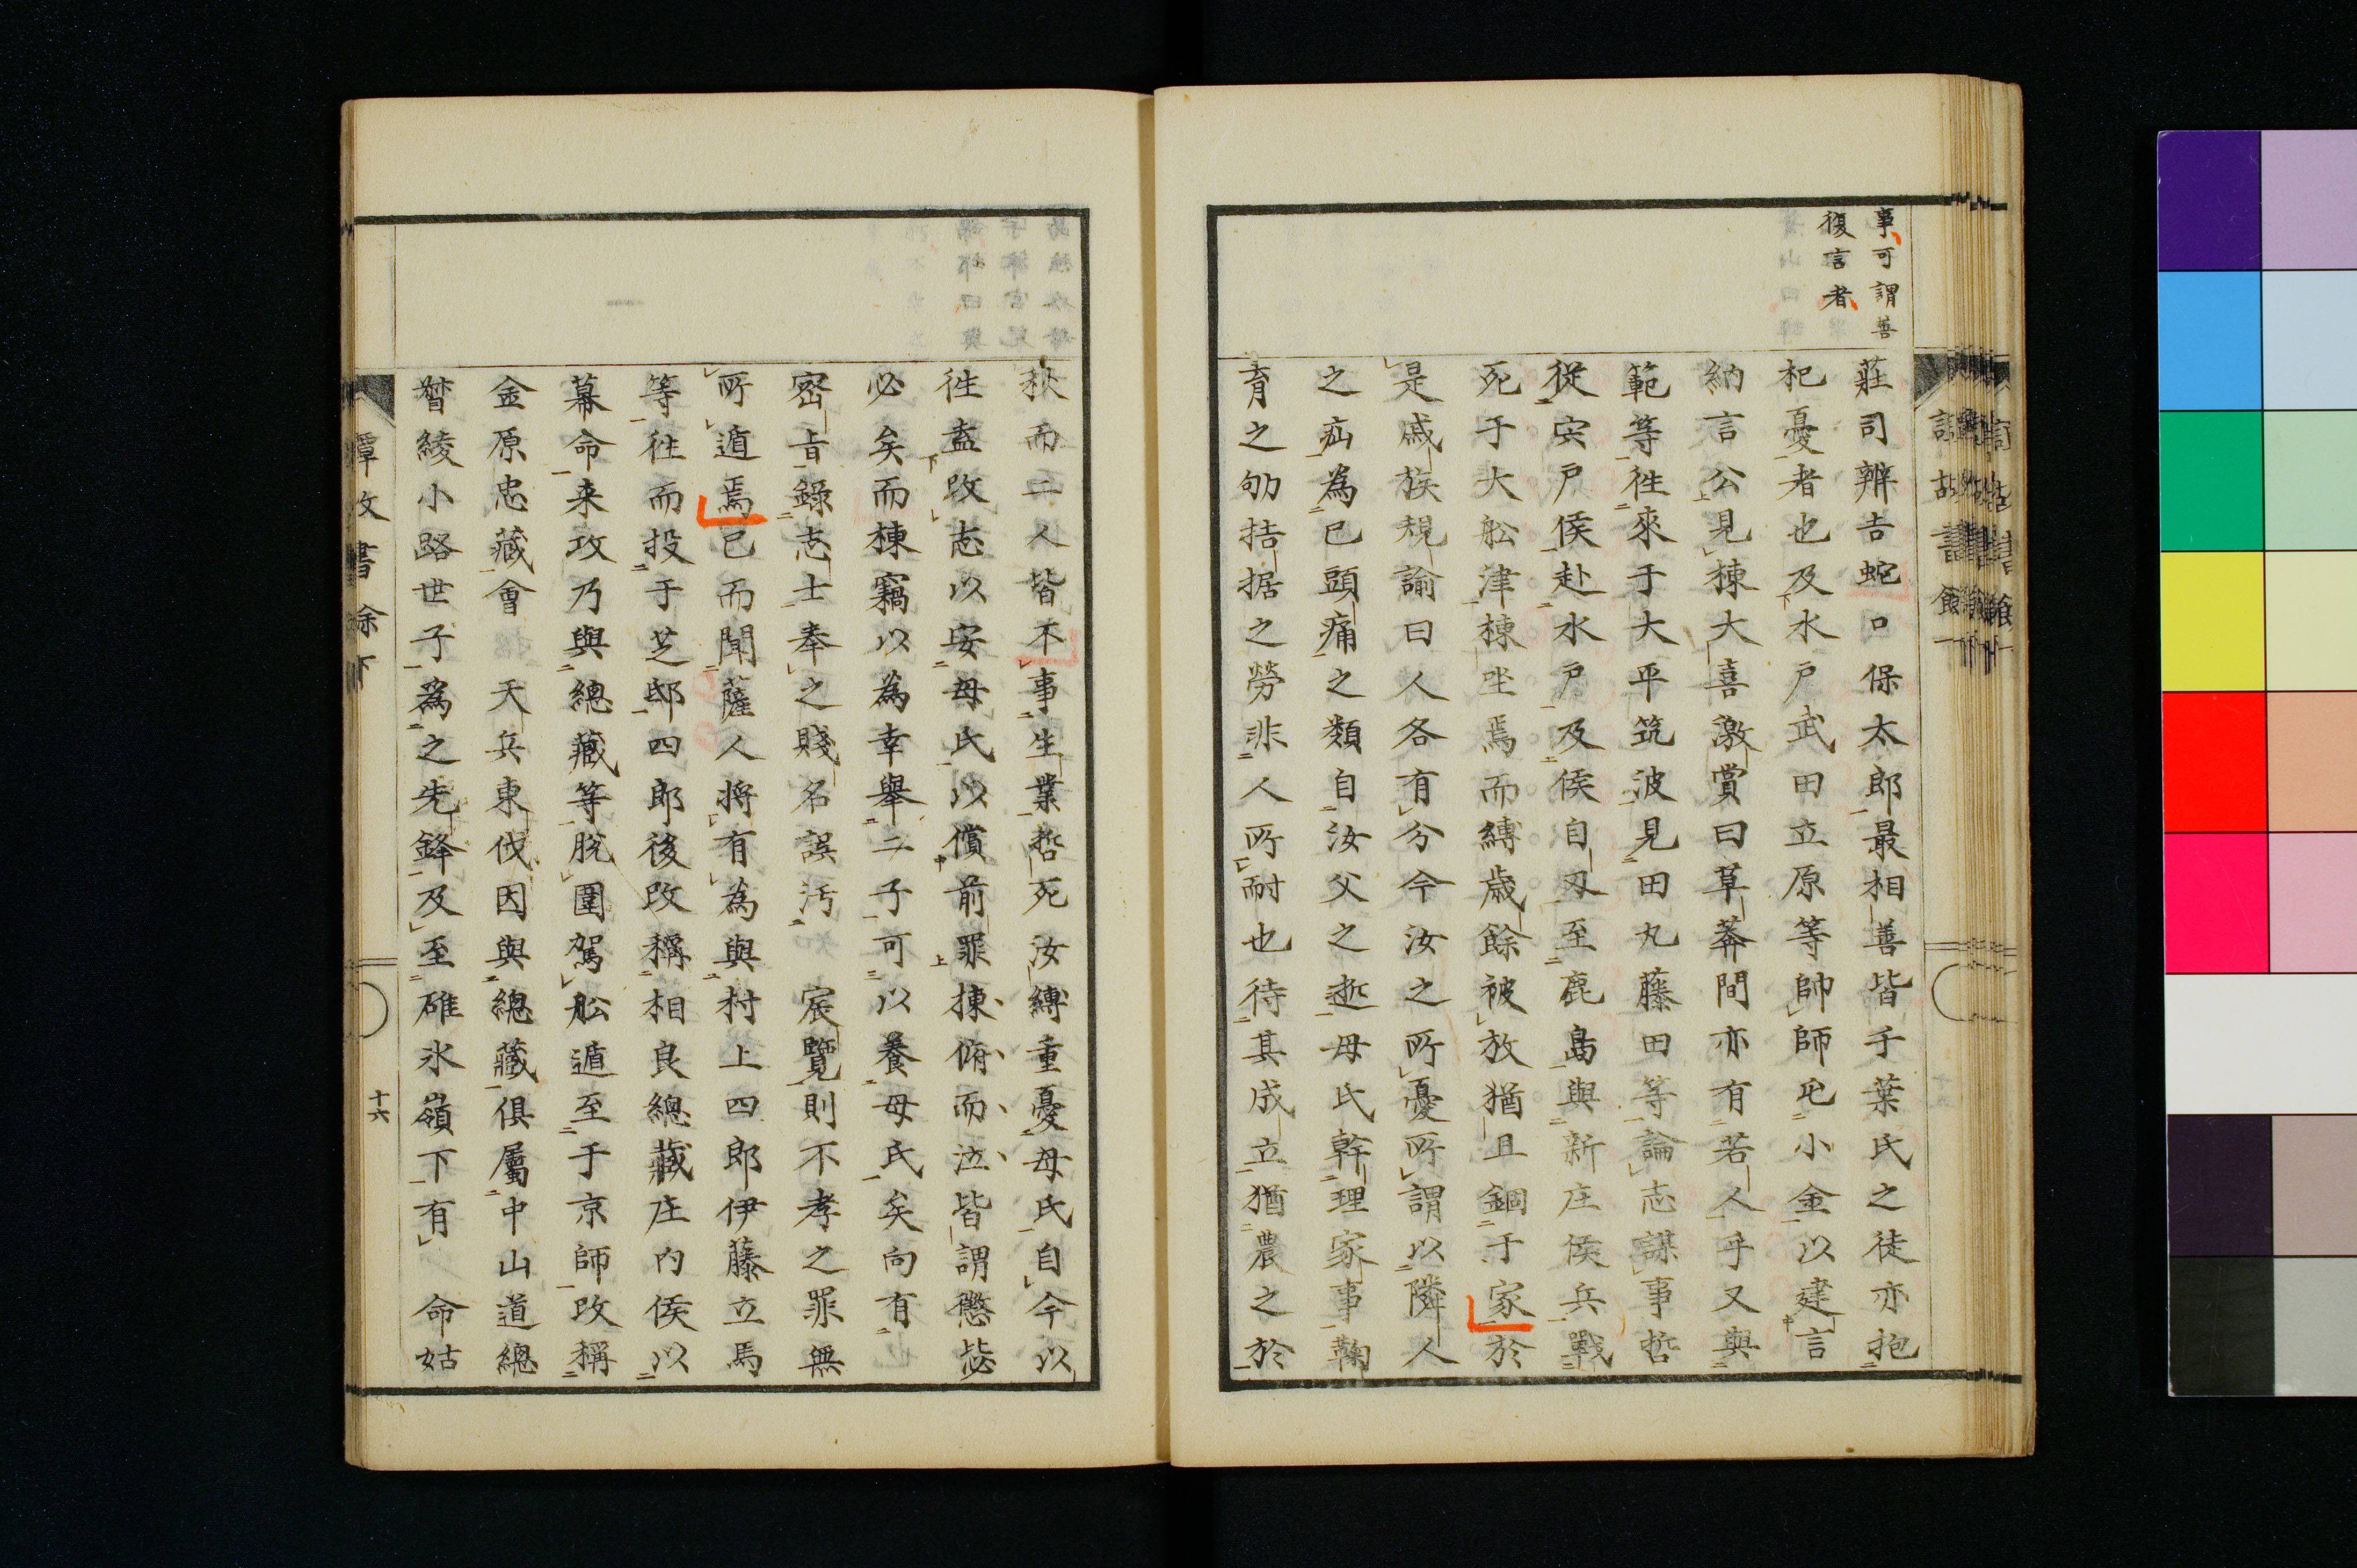 事可謂善
復言者
莊司辨吉蛇口保太郎最相善皆千葉氏之徒亦抱
杞憂者也及水戸武田立原等帥師屯小金以建言
納言公見棟大喜激賞曰草莽間亦有若人乎又與
範等往來于大平筑波見田丸藤田等論志謀事哲
從宍戸侯赴水戸及侯自刃至鹿島與新庄侯兵戰
死于大舩津棟坐焉而縛歳餘被放猶且錮于家於
是戚族規諭曰人各有分今汝之所憂所謂以隣人
之疝為已頭痛之類自汝父之逝母氏幹理家事鞠
育之劬拮据之勞非人所耐也待其成立猶農之於
秋而二人皆不事生業哲死汝縛重憂母氏自今以
徃盍改志以安母氏以償前罪棟俯而泣皆謂懲毖
必矣而棟竊以為幸舉二子可以養母氏矣向有
密旨錄志士奉之賤名誤汚宸覽則不孝之罪無
所遁焉已而聞薩人將有為與村上四郎伊藤立馬
等徃而投于芝邸四郎後改稱相良總藏庄内侯以
幕命来攻乃與總藏等脫圍駕舩遁至于京師改稱
金原忠藏會天兵東伐因與總藏俱屬中山道總
督綾小路世子為之先鋒及至碓氷嶺下有命姑
十六